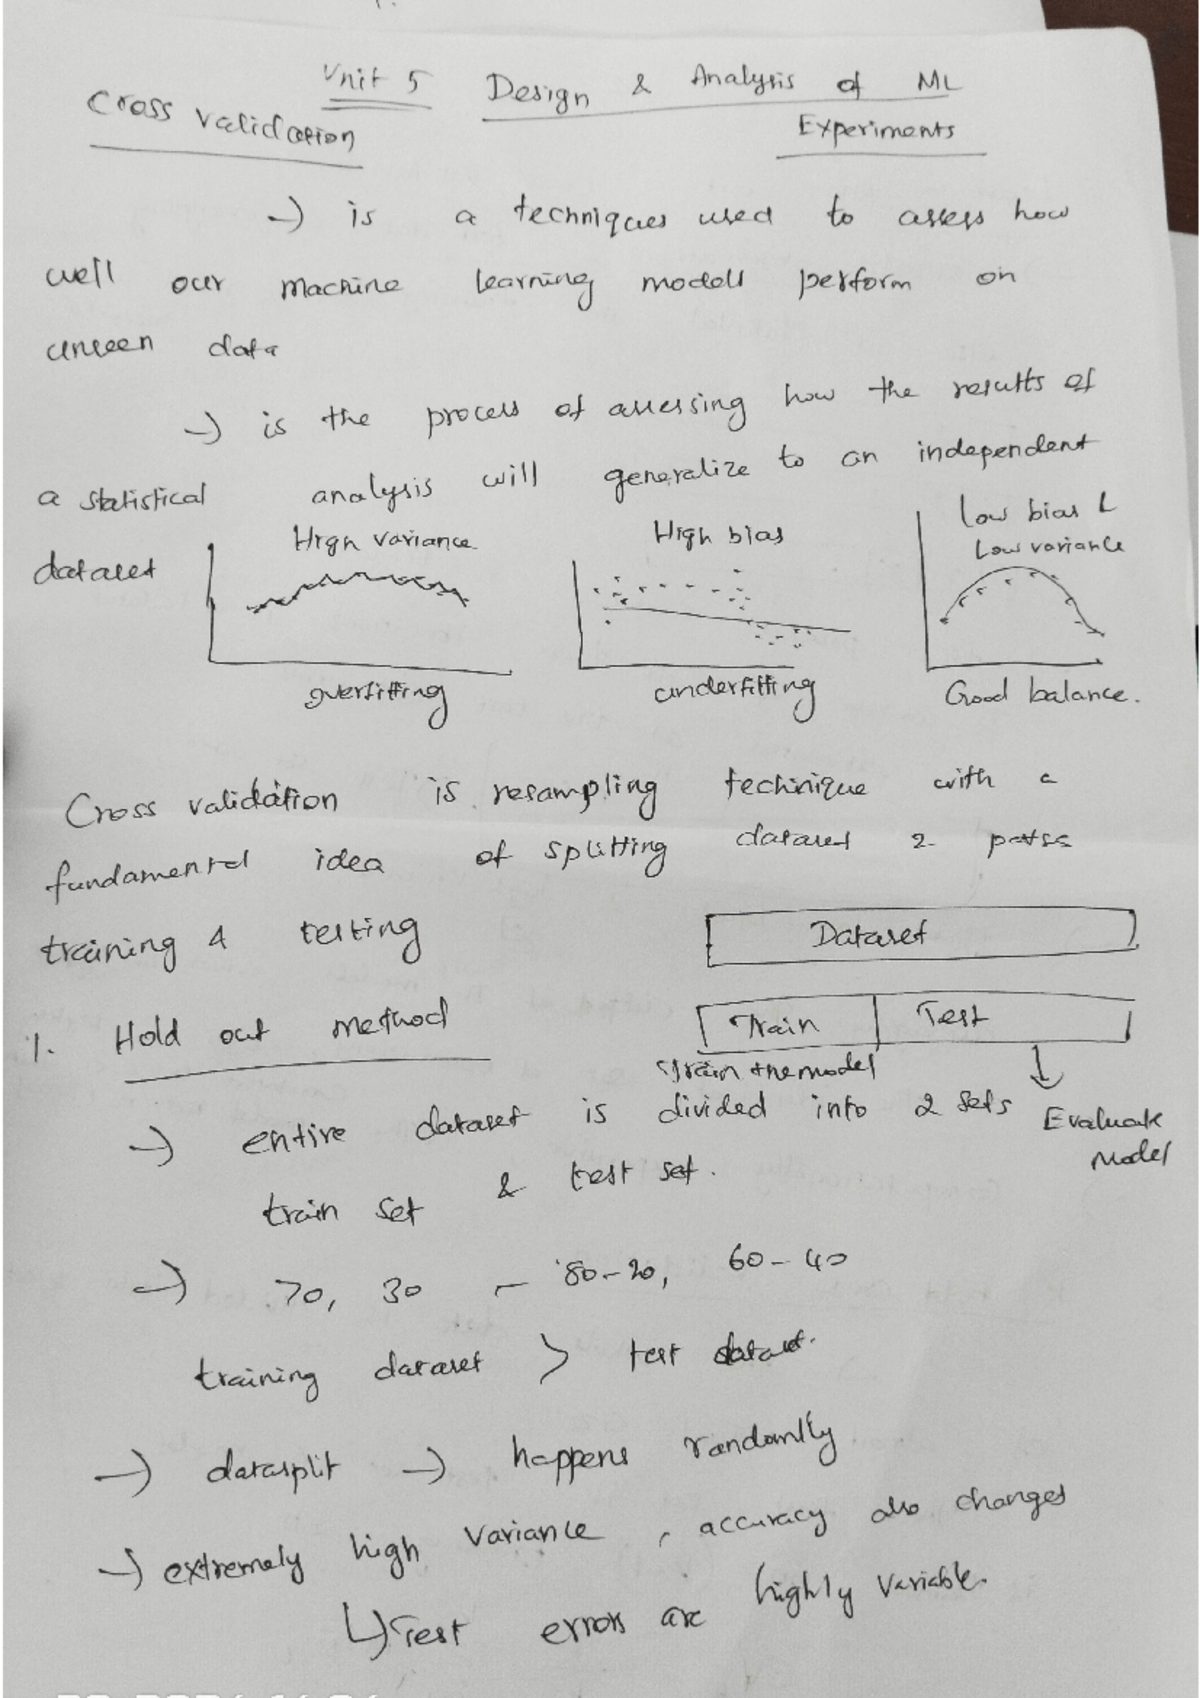 Unit 5 Design & Analysis of ML
Experiments
Cross validation
→ is a techniques used to assess how
well our machine learning modells perform on
unseen data
→ is the process of assessing how the results of
a statistical analysis will generalize to an independent
dataset
High variance
High bias
Low bias &
Low variance
overfitting
underfitting
Good balance.
Cross validation is resampling techinique with a
fundamental idea of splitting dataset 2
training & testing
Dataset
Train Test
Train the model
Evaluate
Model
1. Hold out method
→ entire dataset is divided into 2 sets
train set & test set.
→ 70, 30 – 80-20, 60-40
training dataset > test dataset.
→ datasplit → happens randomly
→ extremely high variance, accuracy also changes
↳ Test errors are highly variable.